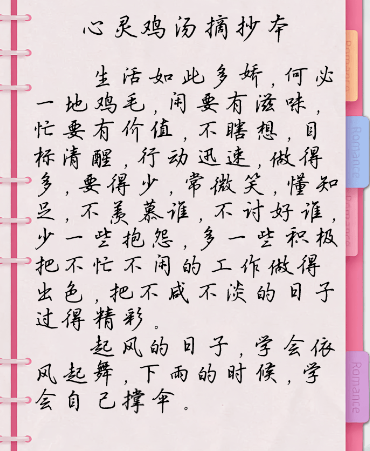 心灵鸡汤摘抄本
生活如此多娇,何必
一地鸡毛,闲要有滋味,
忙要有价值,不瞎想,目
标清醒,行动迅速,做得
多,要得少,常微笑,懂知
足,不羡慕谁,不讨好谁,
少一些抱怨,多一些积极
把不忙不闲的工作做得
出色,把不咸不淡的日子
过得精彩。
起风的日子,学会依
风起舞,下雨的时候,学
会自己撑伞。
Romance
Romance
Romance
Romance